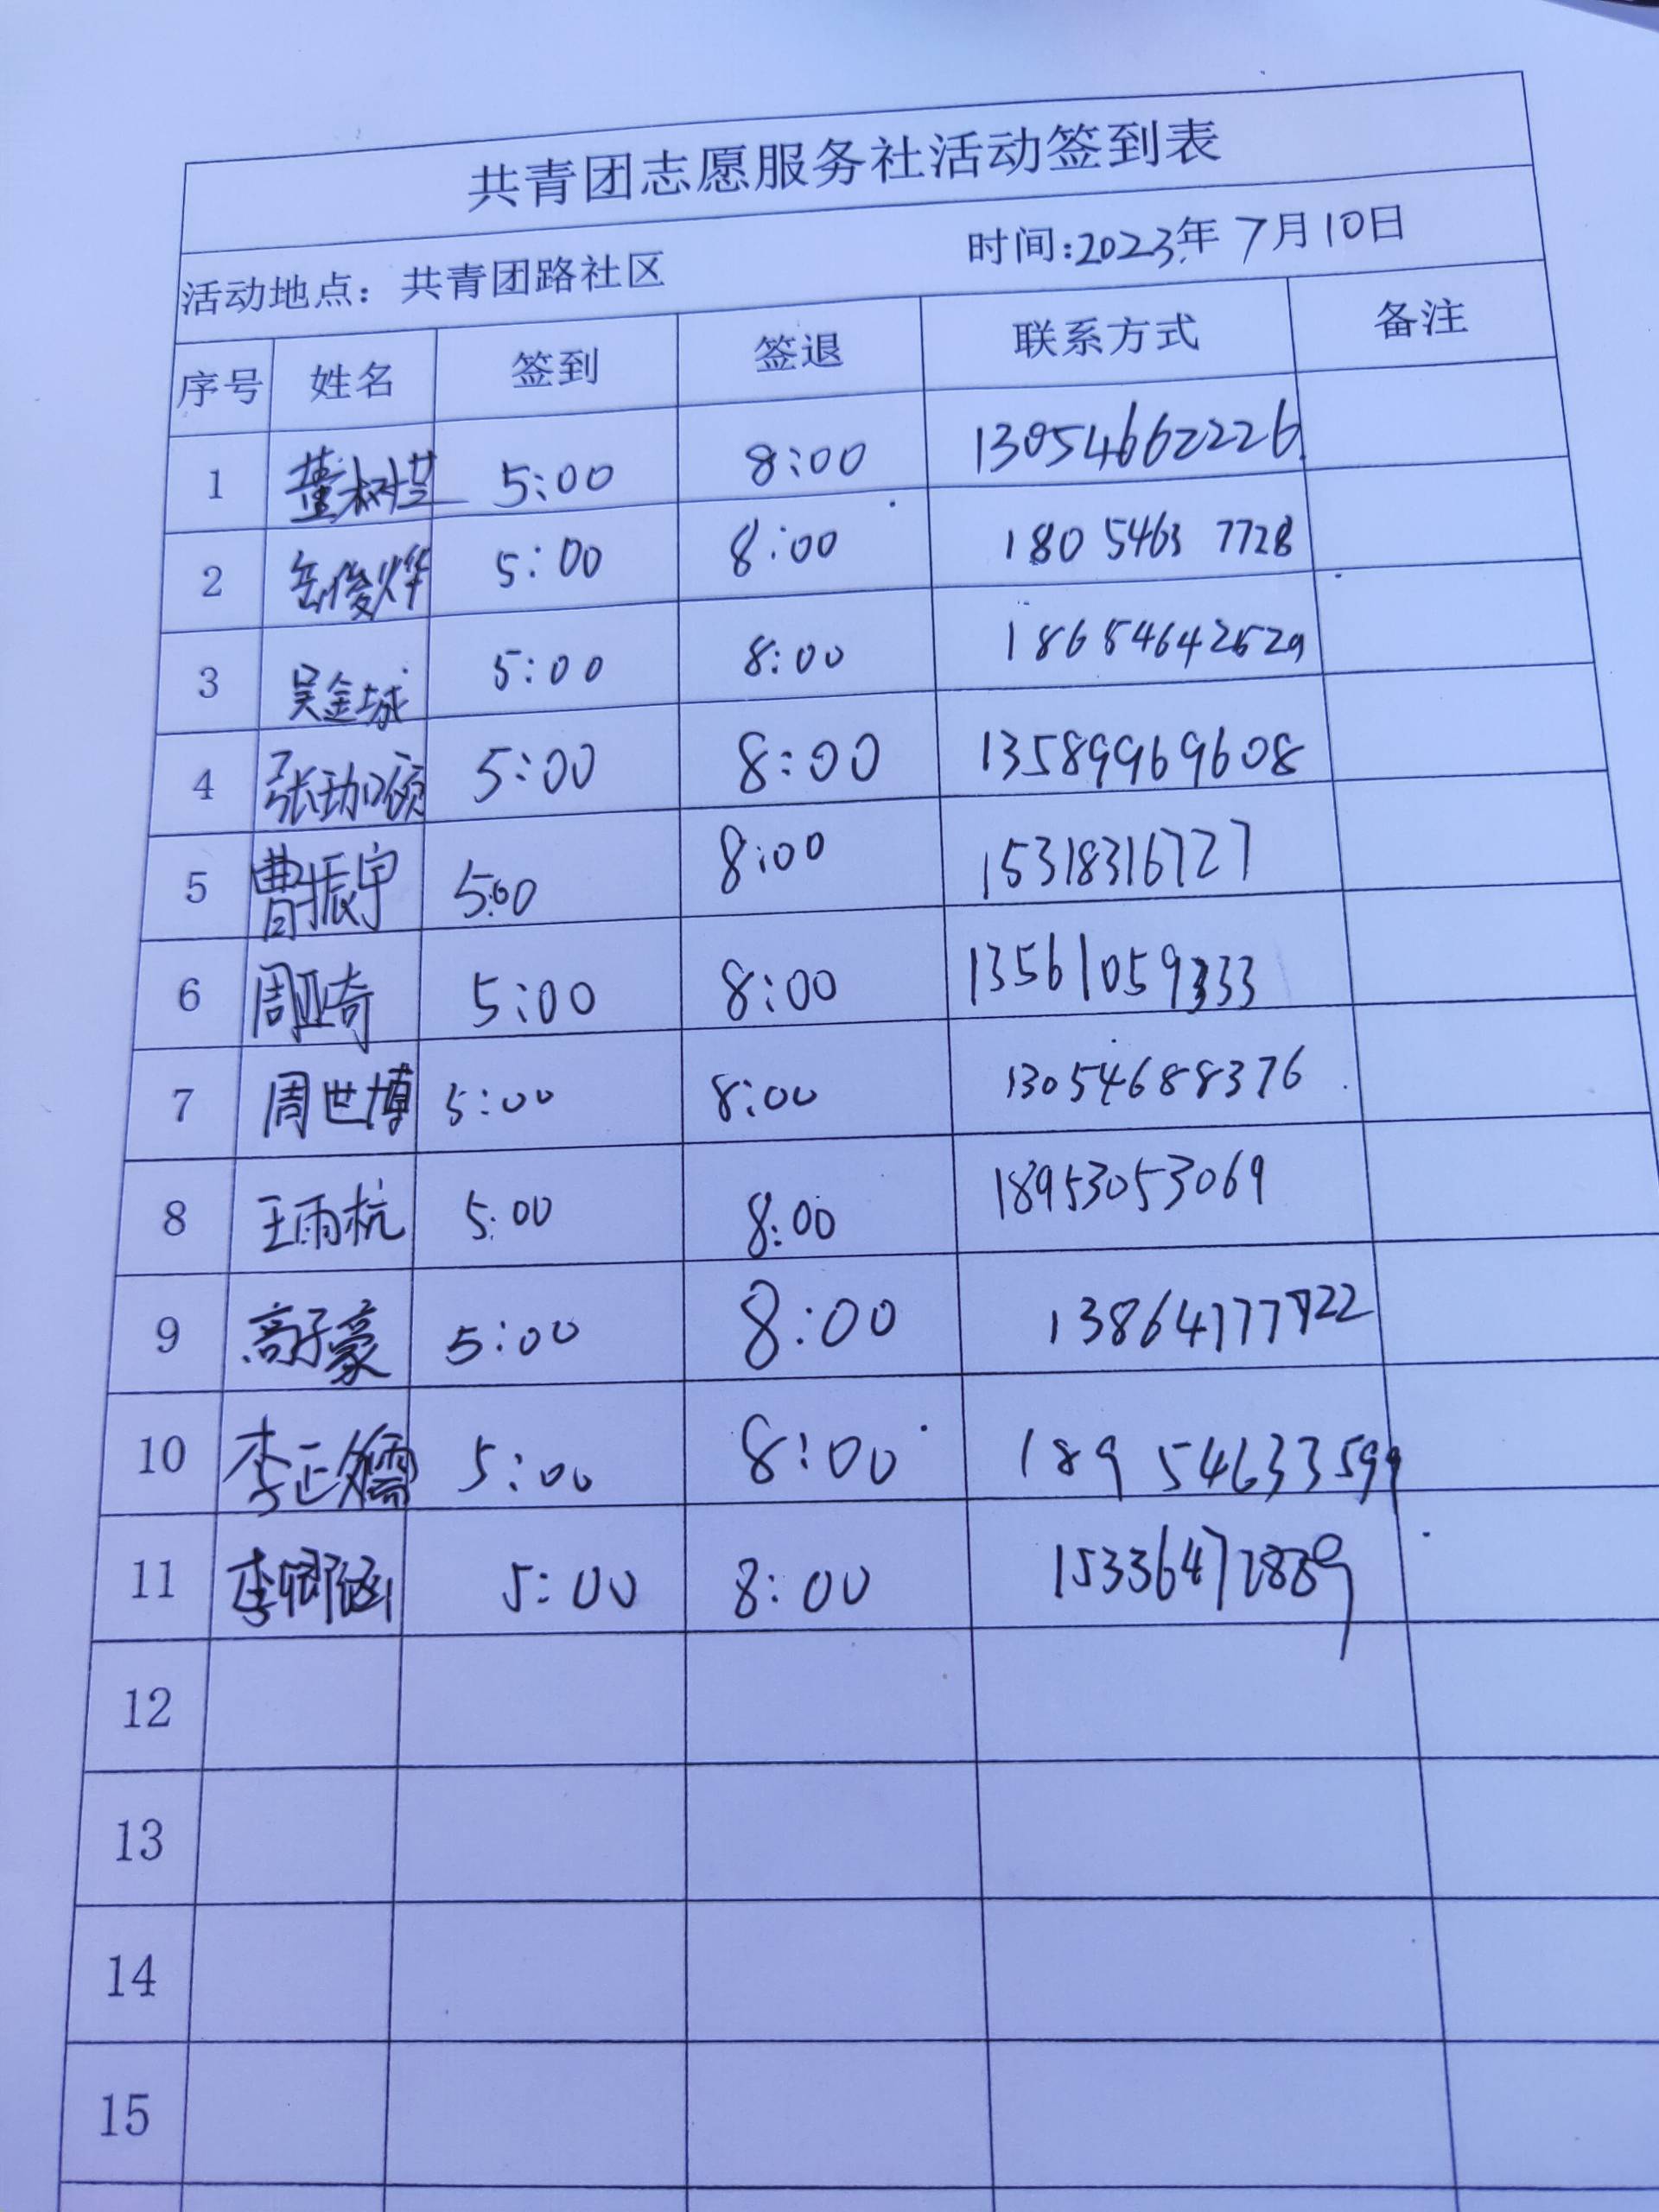 共青团志愿服务社活动签到表
活动地点：共青团路社区 时间:2023年7月10日
序号 姓名 签到 签退 联系方式 备注
1 董树洪 5:00 8:00 13054662226
2 岳俊烨 5:00 8:00 180 5463 7728
3 吴金城 5:00 8:00 18654642529
4 张珈硕 5:00 8:00 13589969608
5 曹振宇 5:00 8:00 15318316727
6 周亚奇 5:00 8:00 13561059333
7 周世博 5:00 8:00 13054688376
8 王雨杭 5:00 8:00 18953053069
9 高子豪 5:00 8:00
10 李正 5:00 8:00 189 54633599
11 李卿 5:00 8:00
12
13
14
15